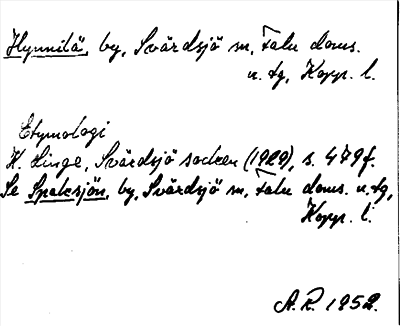 Hynnilä, by, Svärdsjö sn, Falu doms.
n. tg, Kopp. l.
Etymologi
K. Linge, Svärdsjö socken (1929), s. 479 f.
Se Spaksjön, by, Svärdsjö sn, Falu doms. n. tg,
Kopp. l.
A.R. 1952.